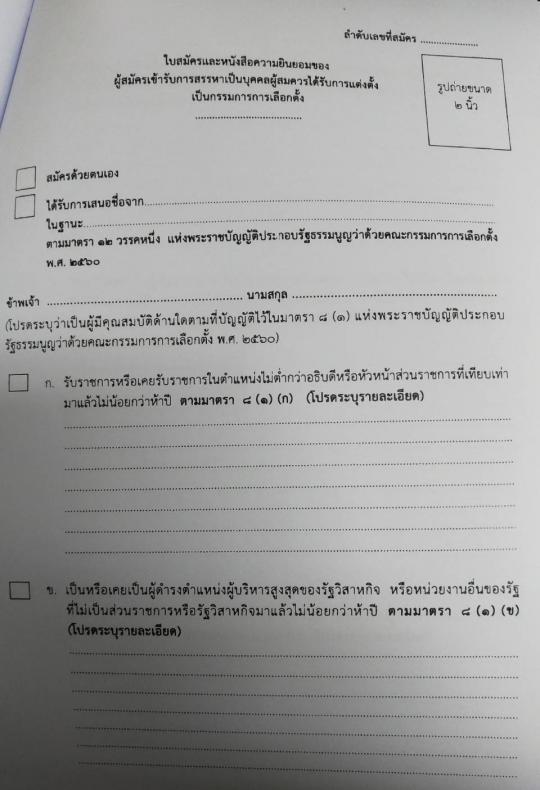 ลำดับเลขที่สมัคร ....................
ใบสมัครและหนังสือความยินยอมของ
ผู้สมัครเข้ารับการสรรหาเป็นบุคคลผู้สมควรได้รับการแต่งตั้ง
เป็นกรรมการการเลือกตั้ง
....................................
รูปถ่ายขนาด
๒ นิ้ว
สมัครด้วยตนเอง
ได้รับการเสนอชื่อจาก....................................................................................................
ในฐานะ....................................................................................................
ตามมาตรา ๑๒ วรรคหนึ่ง แห่งพระราชบัญญัติประกอบรัฐธรรมนูญว่าด้วยคณะกรรมการการเลือกตั้ง
พ.ศ. ๒๕๖๐
ข้าพเจ้า ............................................................ นามสกุล ............................................................
(โปรดระบุว่าเป็นผู้มีคุณสมบัติด้านใดตามที่บัญญัติไว้ในมาตรา ๘ (๑) แห่งพระราชบัญญัติประกอบ
รัฐธรรมนูญว่าด้วยคณะกรรมการการเลือกตั้ง พ.ศ. ๒๕๖๐)
ก. รับราชการหรือเคยรับราชการในตำแหน่งไม่ต่ำกว่าอธิบดีหรือหัวหน้าส่วนราชการที่เทียบเท่า
มาแล้วไม่น้อยกว่าห้าปี ตามมาตรา ๘ (๑) (ก) (โปรดระบุรายละเอียด)
ข. เป็นหรือเคยเป็นผู้ดำรงตำแหน่งผู้บริหารสูงสุดของรัฐวิสาหกิจ หรือหน่วยงานอื่นของรัฐ
ที่ไม่เป็นส่วนราชการหรือรัฐวิสาหกิจมาแล้วไม่น้อยกว่าห้าปี ตามมาตรา ๘ (๑) (ข)
(โปรดระบุรายละเอียด)